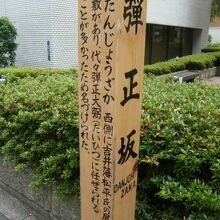 彈正坂
DANJO
ZAKA
だんじょうざか 西側に吉井藩松平氏の屋
敷があり、代々弾正大弼(だいひつ)に任ぜられる
ことが多かったため名づけられた。